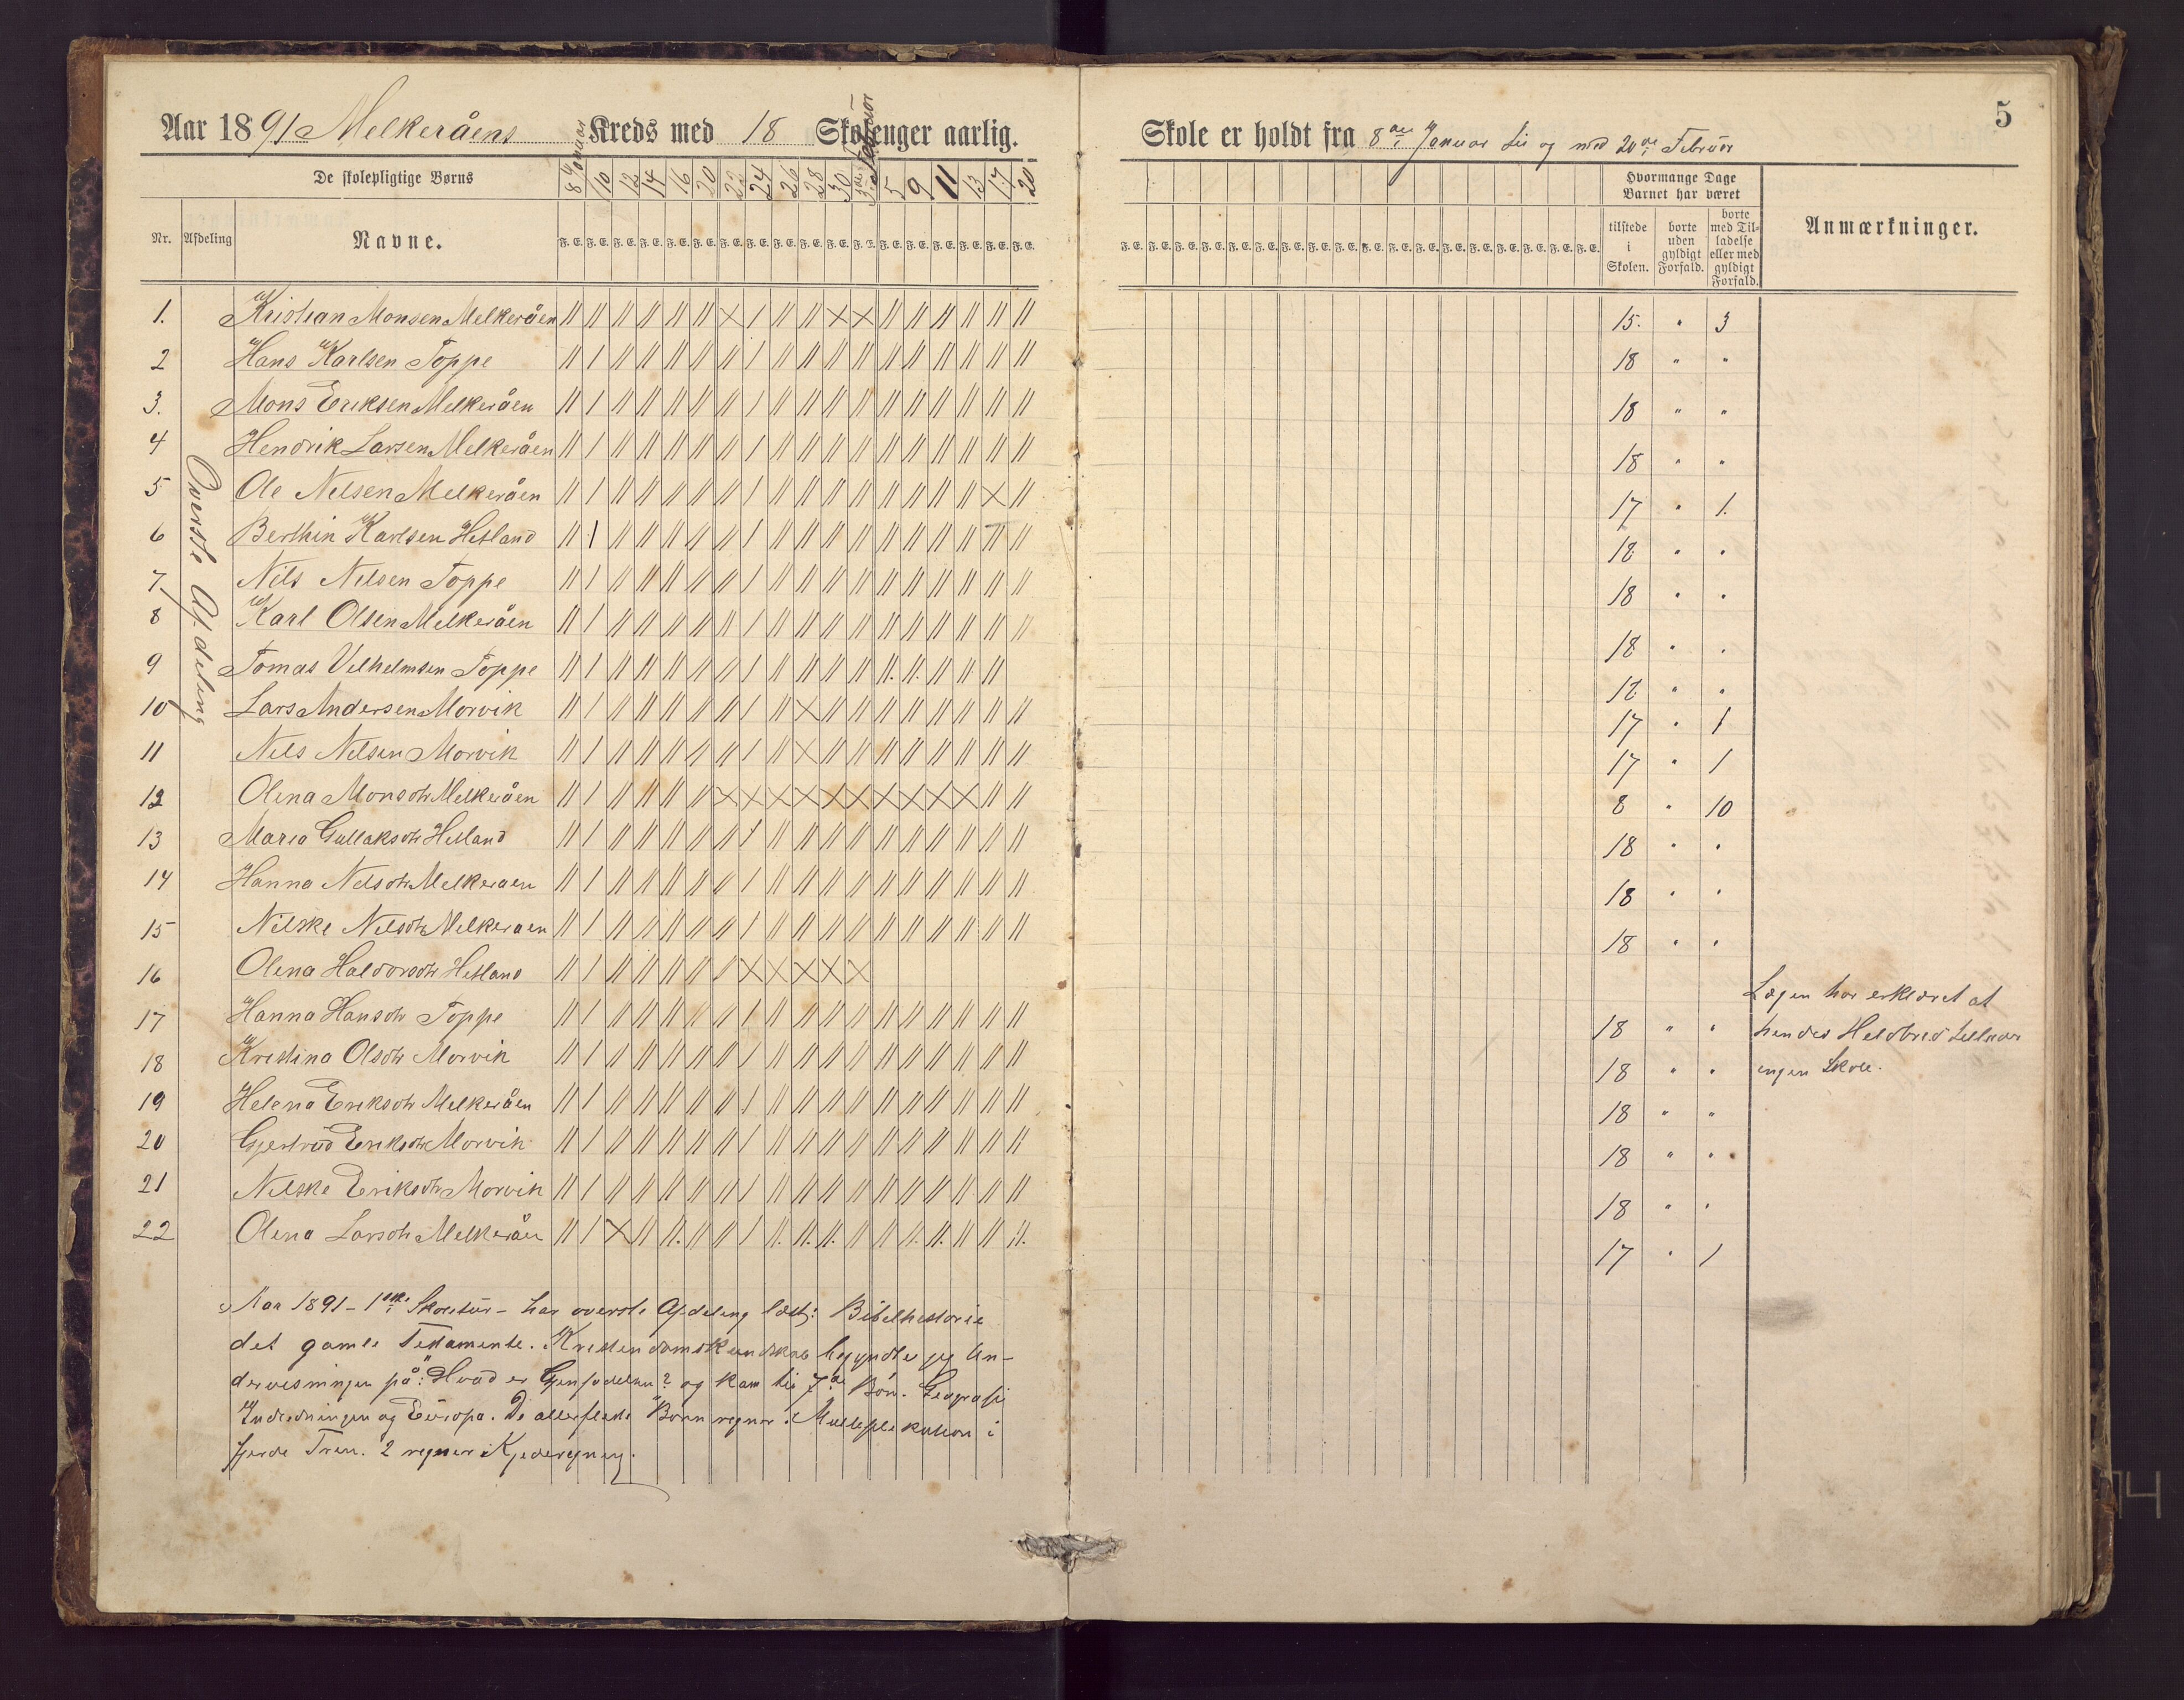 Aar 1891 Melkeråens Kreds med 18 Skolenger aarlig.
Skole er holdt fra 8de Januar til og med 20de Februar
5
De skolepligtige Børns
8 Januar 10 12 14 16 20 22 24 26 28 30 3 Februar 5 9 11 13 17 20
Hvormange Dage Barnet har været
Nr. Afdeling Navne.
F. E. F. E. F. E. F. E. F. E. F. E. F. E. F. E. F. E. F. E. F. E. F. E. F. E. F. E. F. E. F. E. F. E. F. E.
tilstede i Skolen.
borte uden gyldigt Forfald.
borte med Tilladelse eller med gyldigt Forfald.
Anmærkninger.
Øverste Afdeling
1. Kristian Monsen Melkeråen 15. " 3
2 Hans Karlsen Toppe 18 " "
3. Mons Eriksen Melkeråen 18 " "
4 Hendrik Larsen Melkeråen 18 " "
5 Ole Nelsen Melkeråen 17 " 1.
6 Berthin Karlsen Hetland 18 " "
7 Nils Nilsen Toppe 18 " "
8 Karl Olsen Melkeråen 18 " "
9 Tomas Vilhelmsen Toppe 18 " "
10 Lars Andersen Morvik 17 " 1
11 Nils Nilsen Morvik 17 " 1
12 Olena Monsdtr Melkeråen 8 " 10
13 Maria Gullaksdtr Hetland 18 " "
14 Hanna Nelsdtr Melkeraen 18 " "
15 Nilske Nilsdtr Melkeraen 18 " "
16 Olena Haldorsdtr Hetland
Lægen har erklæret at
17 Hanna Hansdtr Toppe 18 " "
hendes Helobred tillader
18 Kristina Olsdtr Morvik 18 " "
ingen Skole.
19 Helena Eriksdtr Melkeråen 18 " "
20 Gjertrud Eriksdtr Morvik 18 " "
21 Nilske Eriksdtr Morvik 18 " "
22 Olena Larsdtr Melkeråen 17 " 1
Aar 1891 – 1ste Skoletur – har øverste Afdeling læst: Bibelhistorie
det gamle Testamente. Kristendomskundskab begyndte jeg Un-
dervisningen på: "Hvad er Gjenfødelsen? og kom til 7de Bøn. Geografi
Indledningen og Europa. De allerfleste Børn regner i Multiplikation i
fjerde Trin. 2 regner Kjederegning.